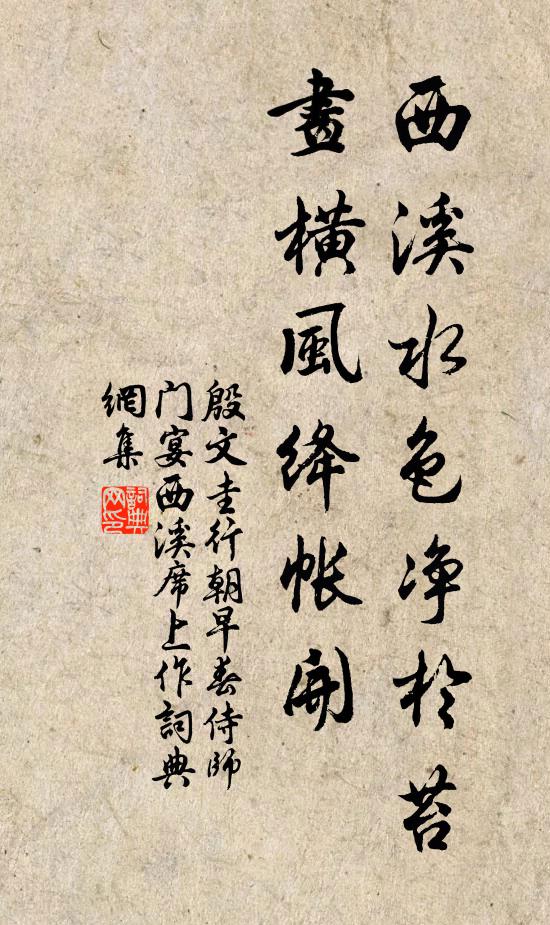 西溪水色净於苔
畫橫風絳帳開
殷文圭行朝早春侍師
门宴西溪席上作詞典
網集
詞典网印